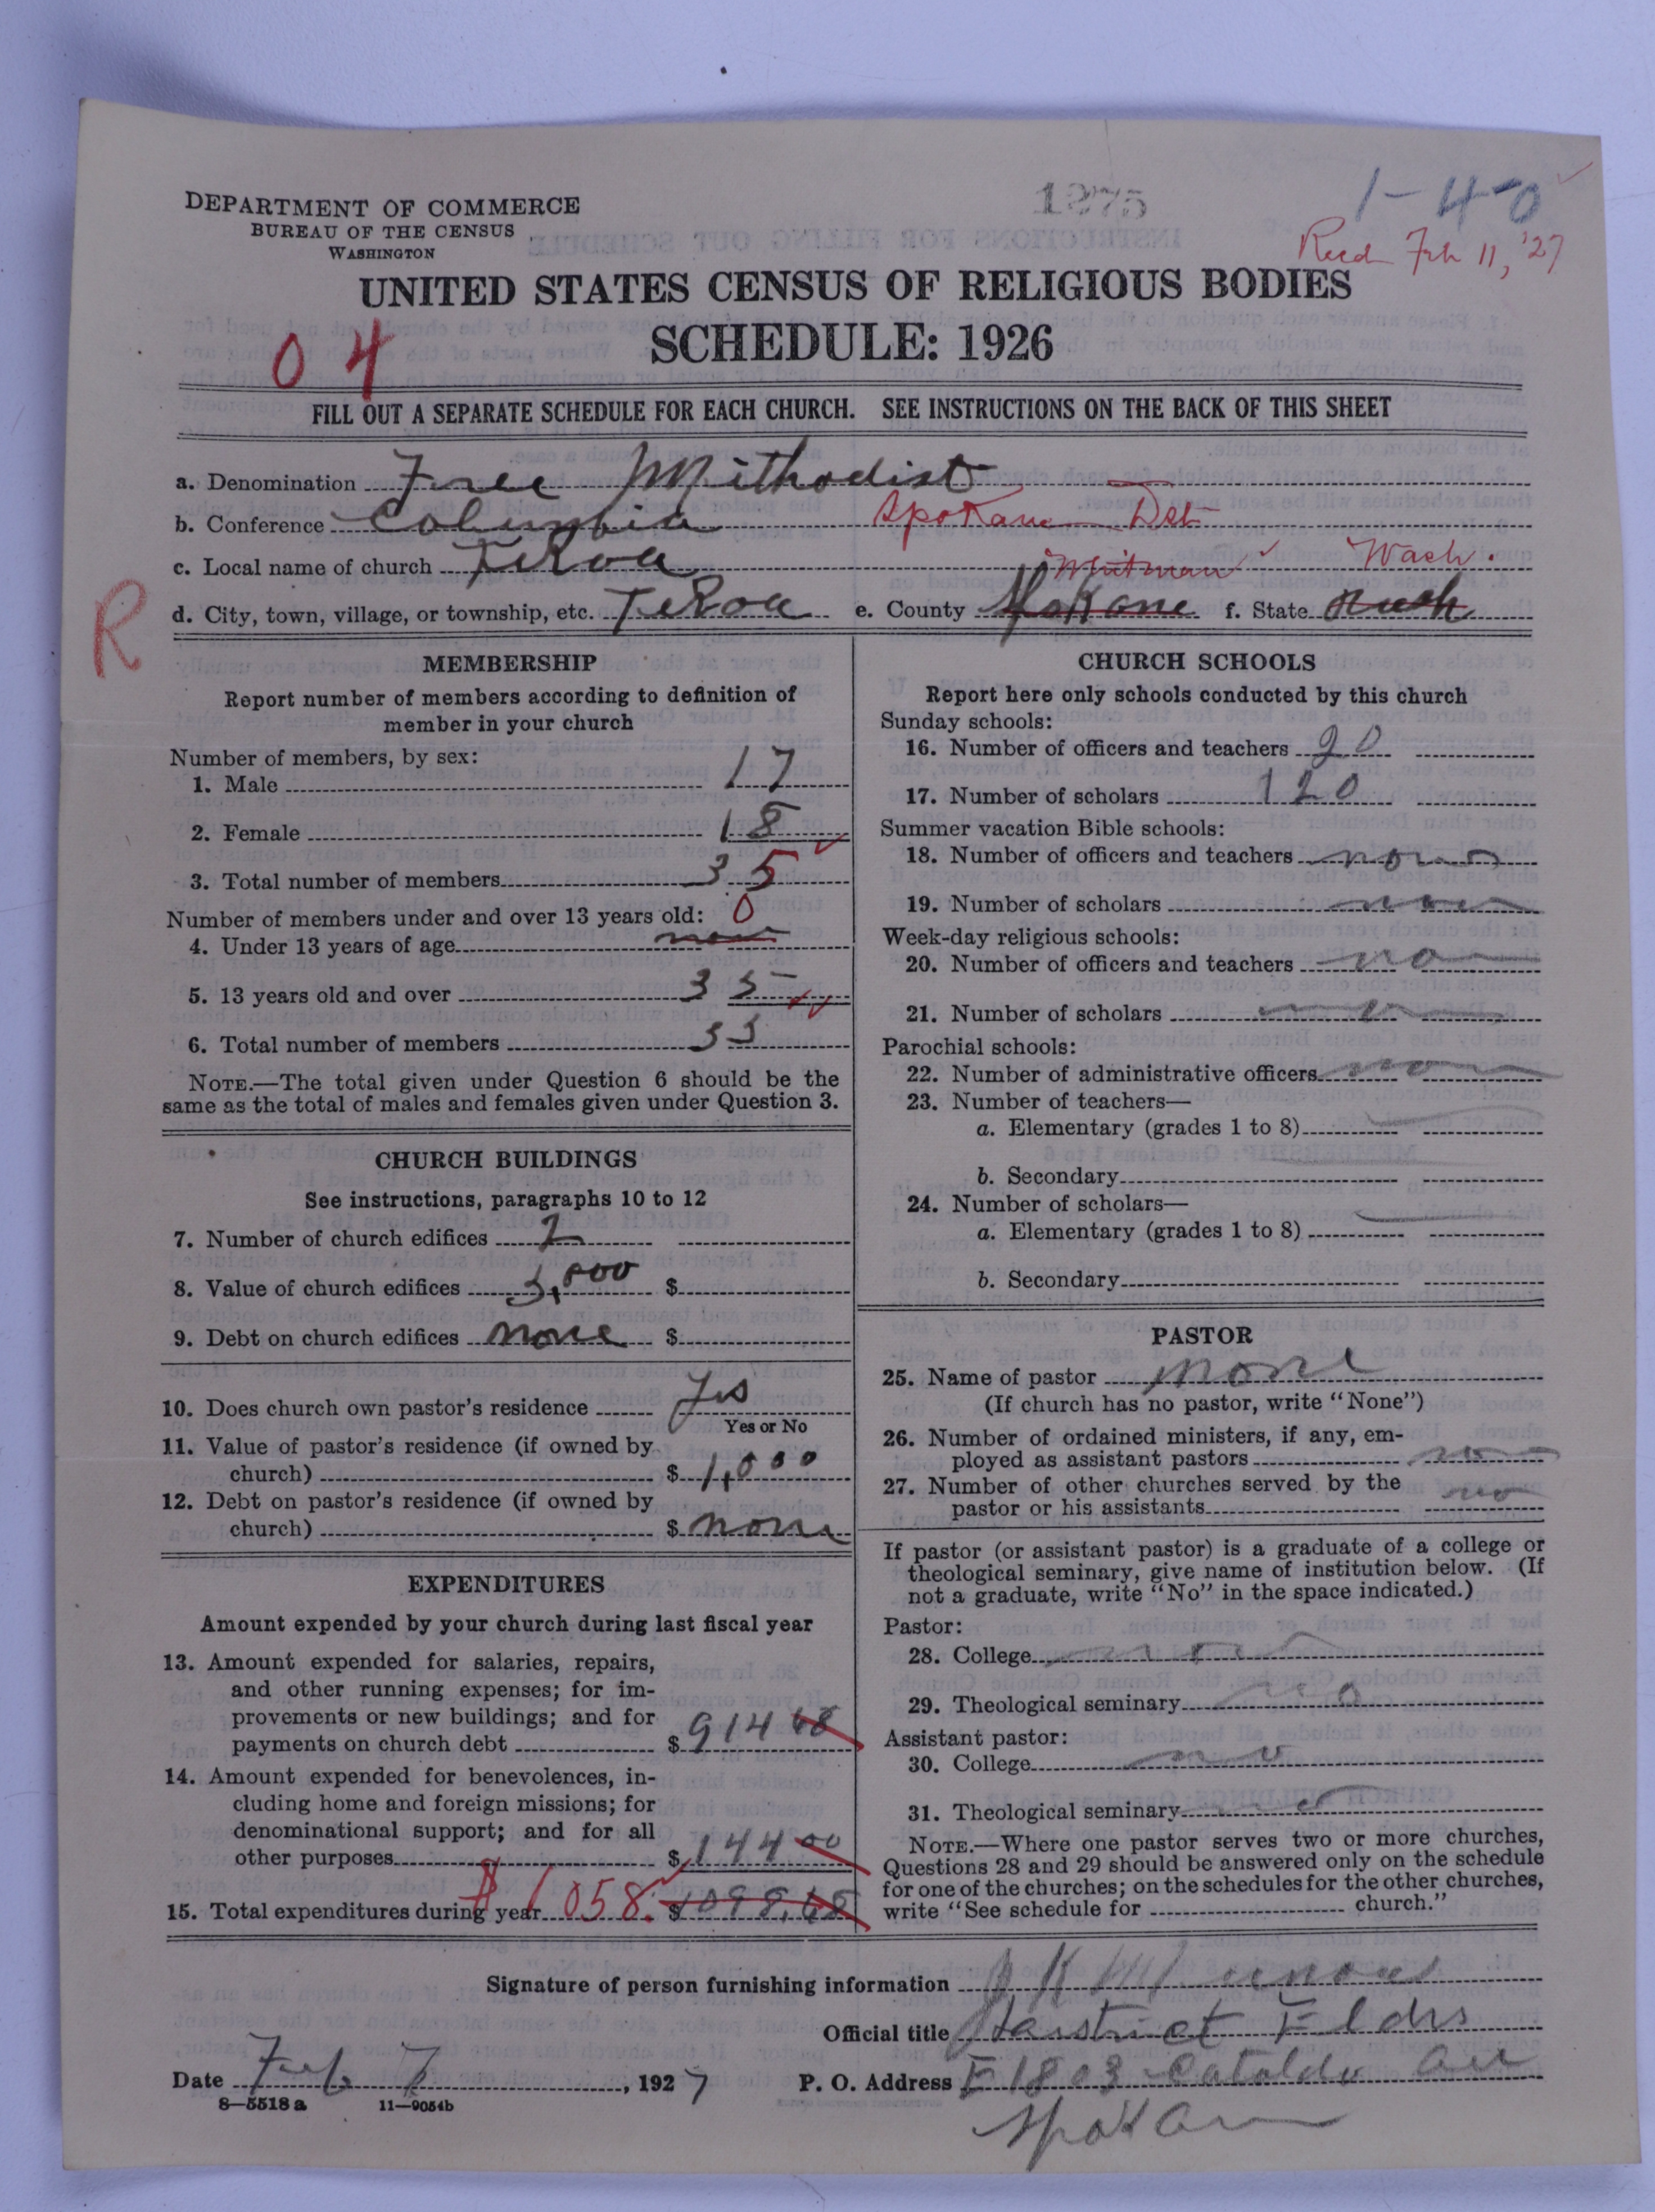 DEPARTMENT OF COMMERCE
BUREAU OF THE CENSUS
WASHINGTON
1275
1-4-0
Recd Feb 11, '27
UNITED STATES CENSUS OF RELIGIOUS BODIES
SCHEDULE: 1926
04
FILL OUT A SEPARATE SCHEDULE FOR EACH CHURCH. SEE INSTRUCTIONS ON THE BACK OF THIS SHEET
a. Denomination Free Methodist
b. Conference Columbia Spokane Dst
c. Local name of church TeKoa Whitman Wash.
d. City, town, village, or township, etc. TeKoa e. County Spokane f. State Wash
R
MEMBERSHIP
Report number of members according to definition of
member in your church
Number of members, by sex:
1. Male 17
2. Female 18
3. Total number of members 35
Number of members under and over 13 years old: 0
4. Under 13 years of age none
5. 13 years old and over 35
6. Total number of members 35
NOTE.—The total given under Question 6 should be the
same as the total of males and females given under Question 3.
CHURCH BUILDINGS
See instructions, paragraphs 10 to 12
7. Number of church edifices 2
8. Value of church edifices 3,000 $
9. Debt on church edifices none $
10. Does church own pastor's residence Yes
Yes or No
11. Value of pastor's residence (if owned by
church) $ 1,000
12. Debt on pastor's residence (if owned by
church) $ none
EXPENDITURES
Amount expended by your church during last fiscal year
13. Amount expended for salaries, repairs,
and other running expenses; for im-
provements or new buildings; and for
payments on church debt $ 914 68
14. Amount expended for benevolences, in-
cluding home and foreign missions; for
denominational support; and for all
other purposes $ 144 00
15. Total expenditures during year $1058. $ 1098.68
CHURCH SCHOOLS
Report here only schools conducted by this church
Sunday schools:
16. Number of officers and teachers 20
17. Number of scholars 120
Summer vacation Bible schools:
18. Number of officers and teachers none
19. Number of scholars none
Week-day religious schools:
20. Number of officers and teachers no
21. Number of scholars no
Parochial schools:
22. Number of administrative officers no
23. Number of teachers—
a. Elementary (grades 1 to 8)
b. Secondary
24. Number of scholars—
a. Elementary (grades 1 to 8)
b. Secondary
PASTOR
25. Name of pastor none
(If church has no pastor, write "None")
26. Number of ordained ministers, if any, em-
ployed as assistant pastors no
27. Number of other churches served by the
pastor or his assistants no
If pastor (or assistant pastor) is a graduate of a college or
theological seminary, give name of institution below. (If
not a graduate, write "No" in the space indicated.)
Pastor:
28. College no
29. Theological seminary no
Assistant pastor:
30. College no
31. Theological seminary no
NOTE.—Where one pastor serves two or more churches,
Questions 28 and 29 should be answered only on the schedule
for one of the churches; on the schedules for the other churches,
write "See schedule for church."
Signature of person furnishing information J K
Official title District Elder
Date Feb 7, 1927 P. O. Address E 1803 Cataldo Av
8—5518 a 11—9054b
Spokane